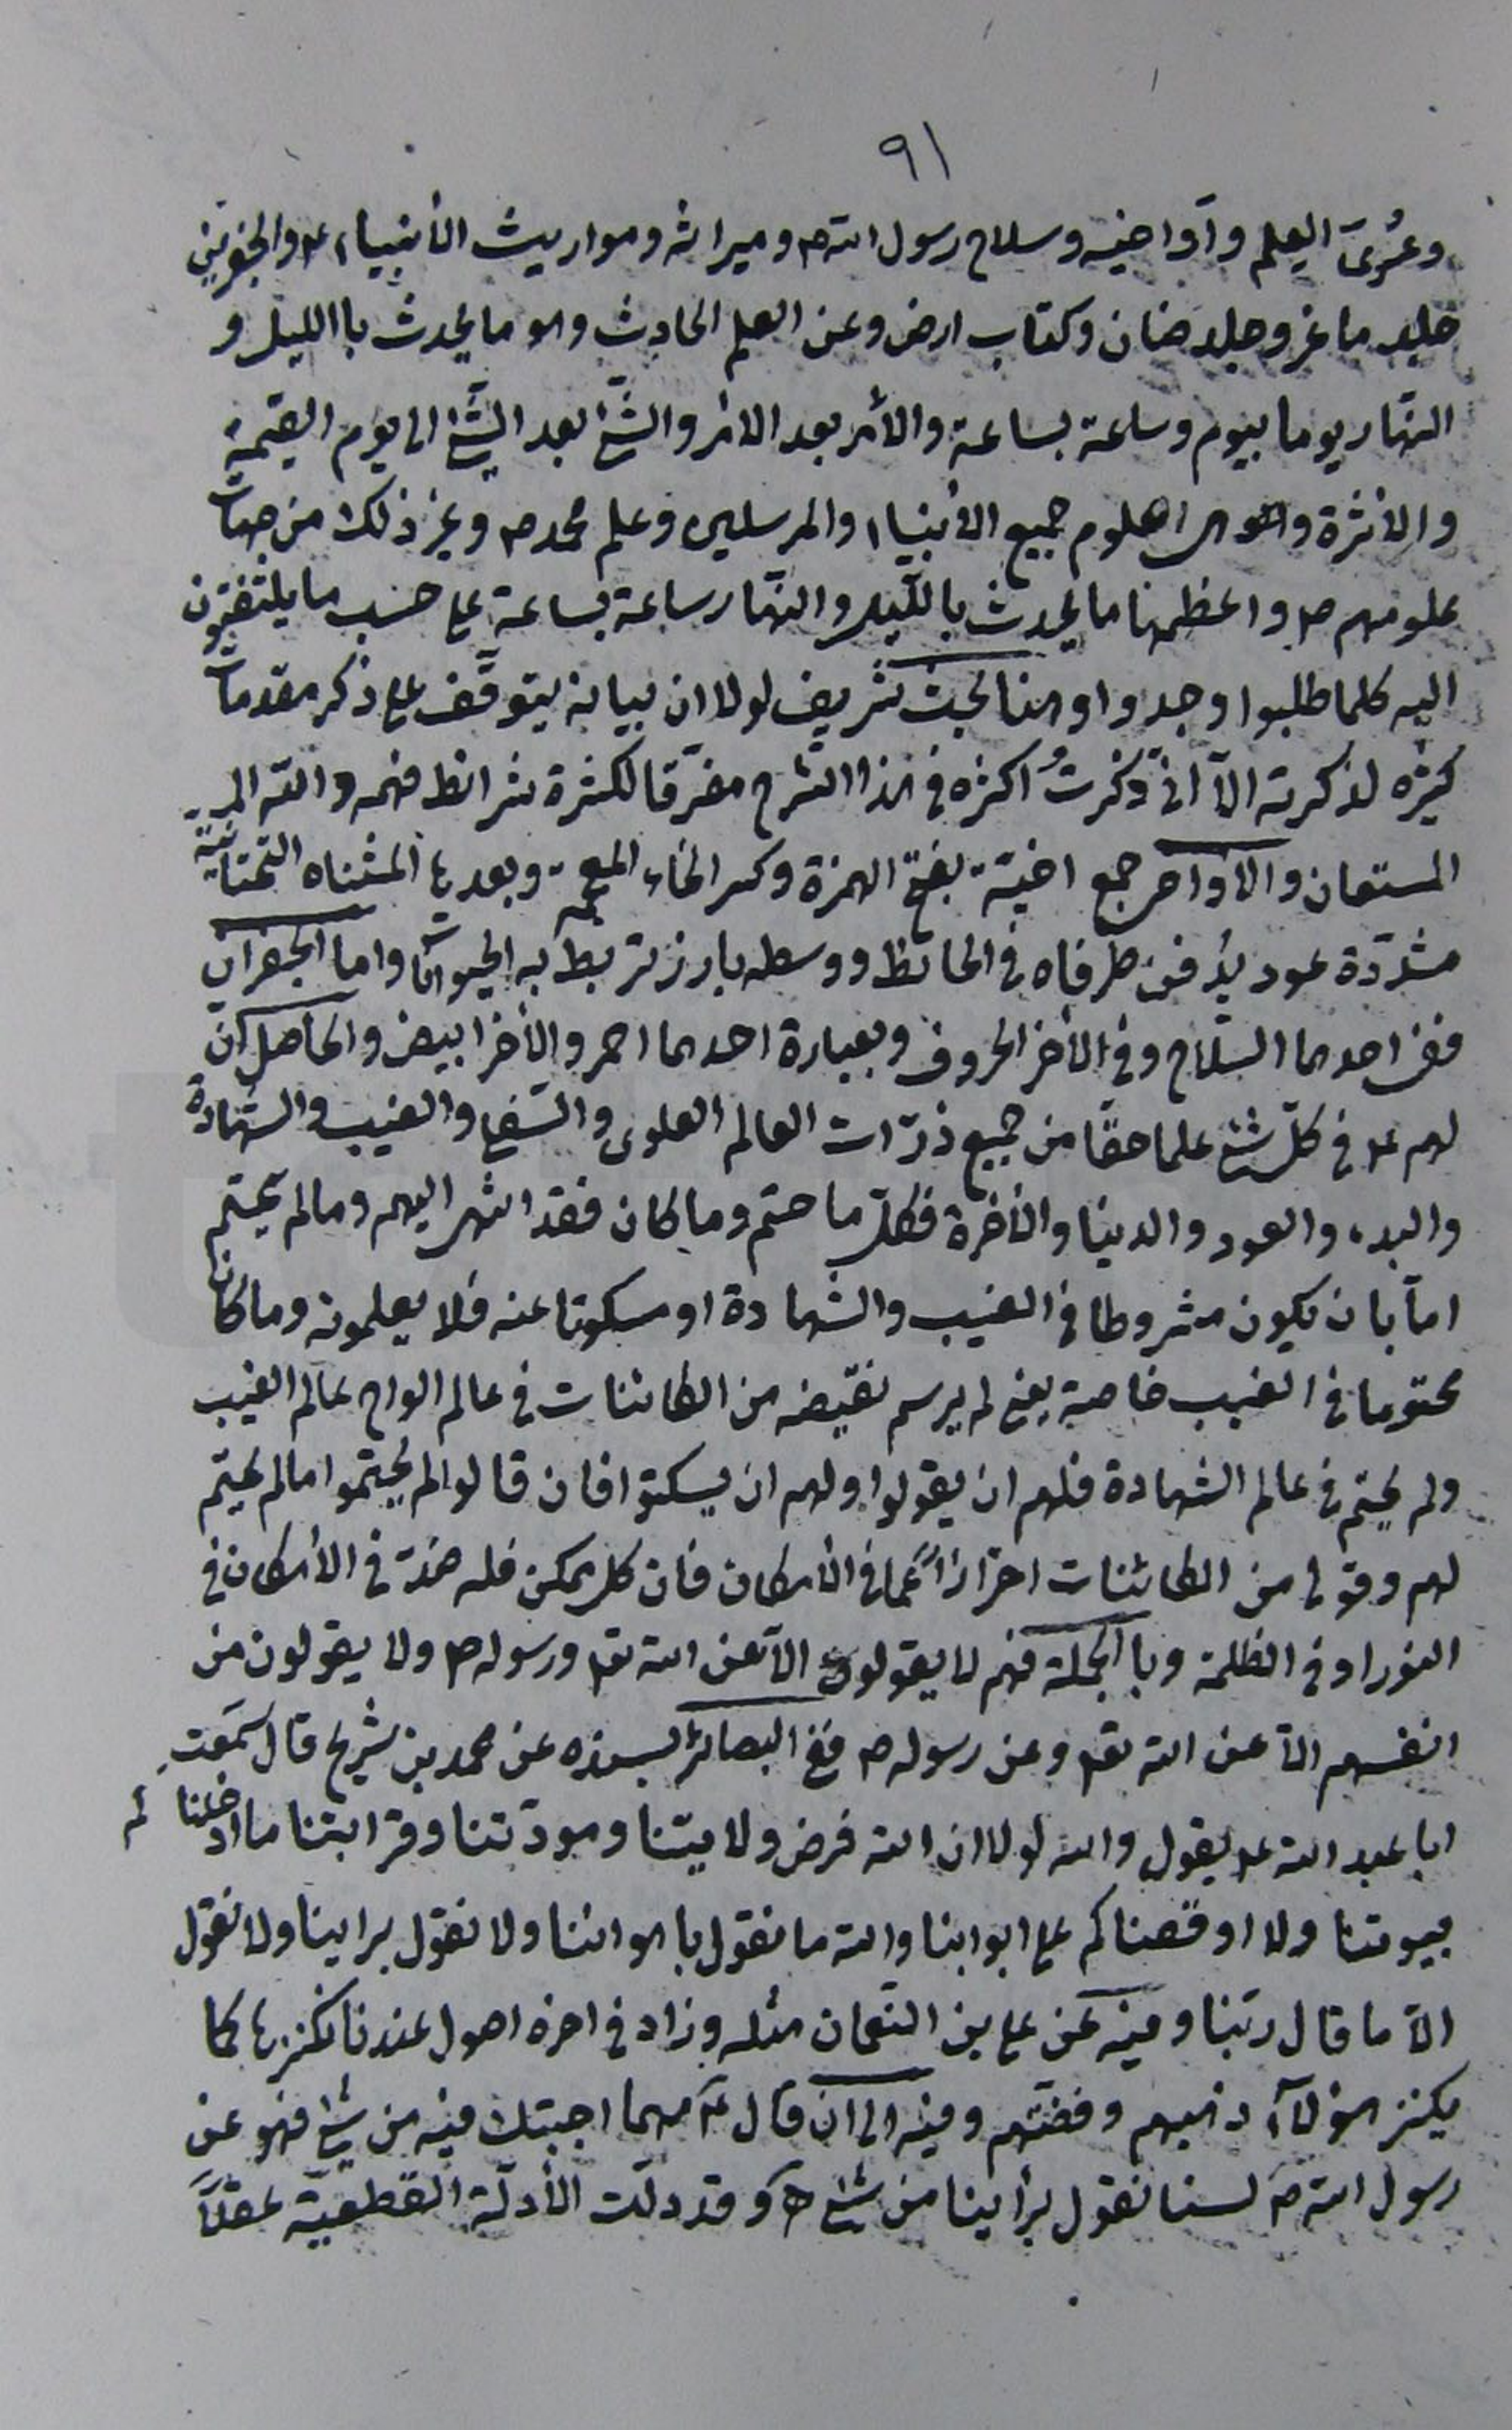 ٩١
وعُرىَ العلم وآواخيه وسلاح رسول الله ص وميراثه ومواريث الأنبياء ع والجفرين
جلد ماعز وجلد ضان وكتاب ارض وعن العلم الحادث وهو ما يحدث باالليل و
النهار يوما بيوم وساعة بساعة والأمر بعد الامر والشئ بعد الشئ الى يوم القيمة
والأثرة علوم جميع الأنبياء والمرسلين وعلم محمد ص وغير ذلك من جهات
علومهم ص واعظمها ما يحدث بالليل والنهار ساعة بساعة على حسب ما يلتفتون
اليه كلما طلبوا وجدوا وهنا بحث شريف لولا ان بيانه يتوقف على ذكر مقدمات
كثيره لذكرته الآ انى ذكرتُ اكثره فى هذا الشرح مفرّقا لكثرة شرائط فهمه والله
المستعان والاواخى جمع اخيّة بفتح الهمزة وكسر الخاء المعجمة وبعدها المثناه التحتانية
مشدّدة عود يُدفن طرفاه فى الحائط ووسطه بارز تربط به الحيوانات واما الجفران
ففى احدهما السلاح وفى الأخر الحروف وبعبارة احدهما احمر والأخر ابيض والحاصل انّ
لهم ع فى كلّ شئ علما حقّا من جميع ذرّات العالم العلوى والسفلى والغيب والشهادة
والبدء والعود والدنيا والأخرة فكلّ ما حتم وما كان فقد انتهى اليهم وما لم يحتم
امّا بان يكون مشروطا فى الغيب والشهادة او مسكوتا عنه فلا يعلمونه وما كان
محتوما فى الغيب خاصة يعنى لم يرسم نقيضه من الكائنات فى عالم الواح عالم الغيب
ولم يحتم فى عالم الشهادة فلهم ان يقولوا ولهم ان يسكتوا فان قالوا لم يحتموا ما لم يحتم
لهم وقولى من الكائنات احترازاً عمّا فى الأمكان فان كل ممكن فله ضدّ فى الأمكان فى
النور او فى الظلمة وباالجملة فهم لا يقولون الآ عن الله تع ورسوله ص ولا يقولون من
انفسهم الآ عن الله تع وعن رسوله ص ففى البصائر بسنده عن محمد بن شريح قال سمعت
ابا عبد الله ع يقول والله لولا ان الله فرض ولايتنا ومودّتنا وقرابتنا ما ادخلناكم
بيوتنا ولا اوقفناكم على ابوابنا والله ما نقول باهوائنا ولا نقول براينا ولا نقول
الآ ما قال ربّنا وفيه عن على بن النعمان مثله وزاد فى اخره اصول عندنا نكنزها كما
يكنز هؤلآء ذهبهم وفضّتهم وفيه الى ان قال ع مهما اجبتك فيه من شئ فهو عن
رسول الله ص لسنا نقول براينا من شئ وقد دلّت الأدلّة القطعية عقلاً